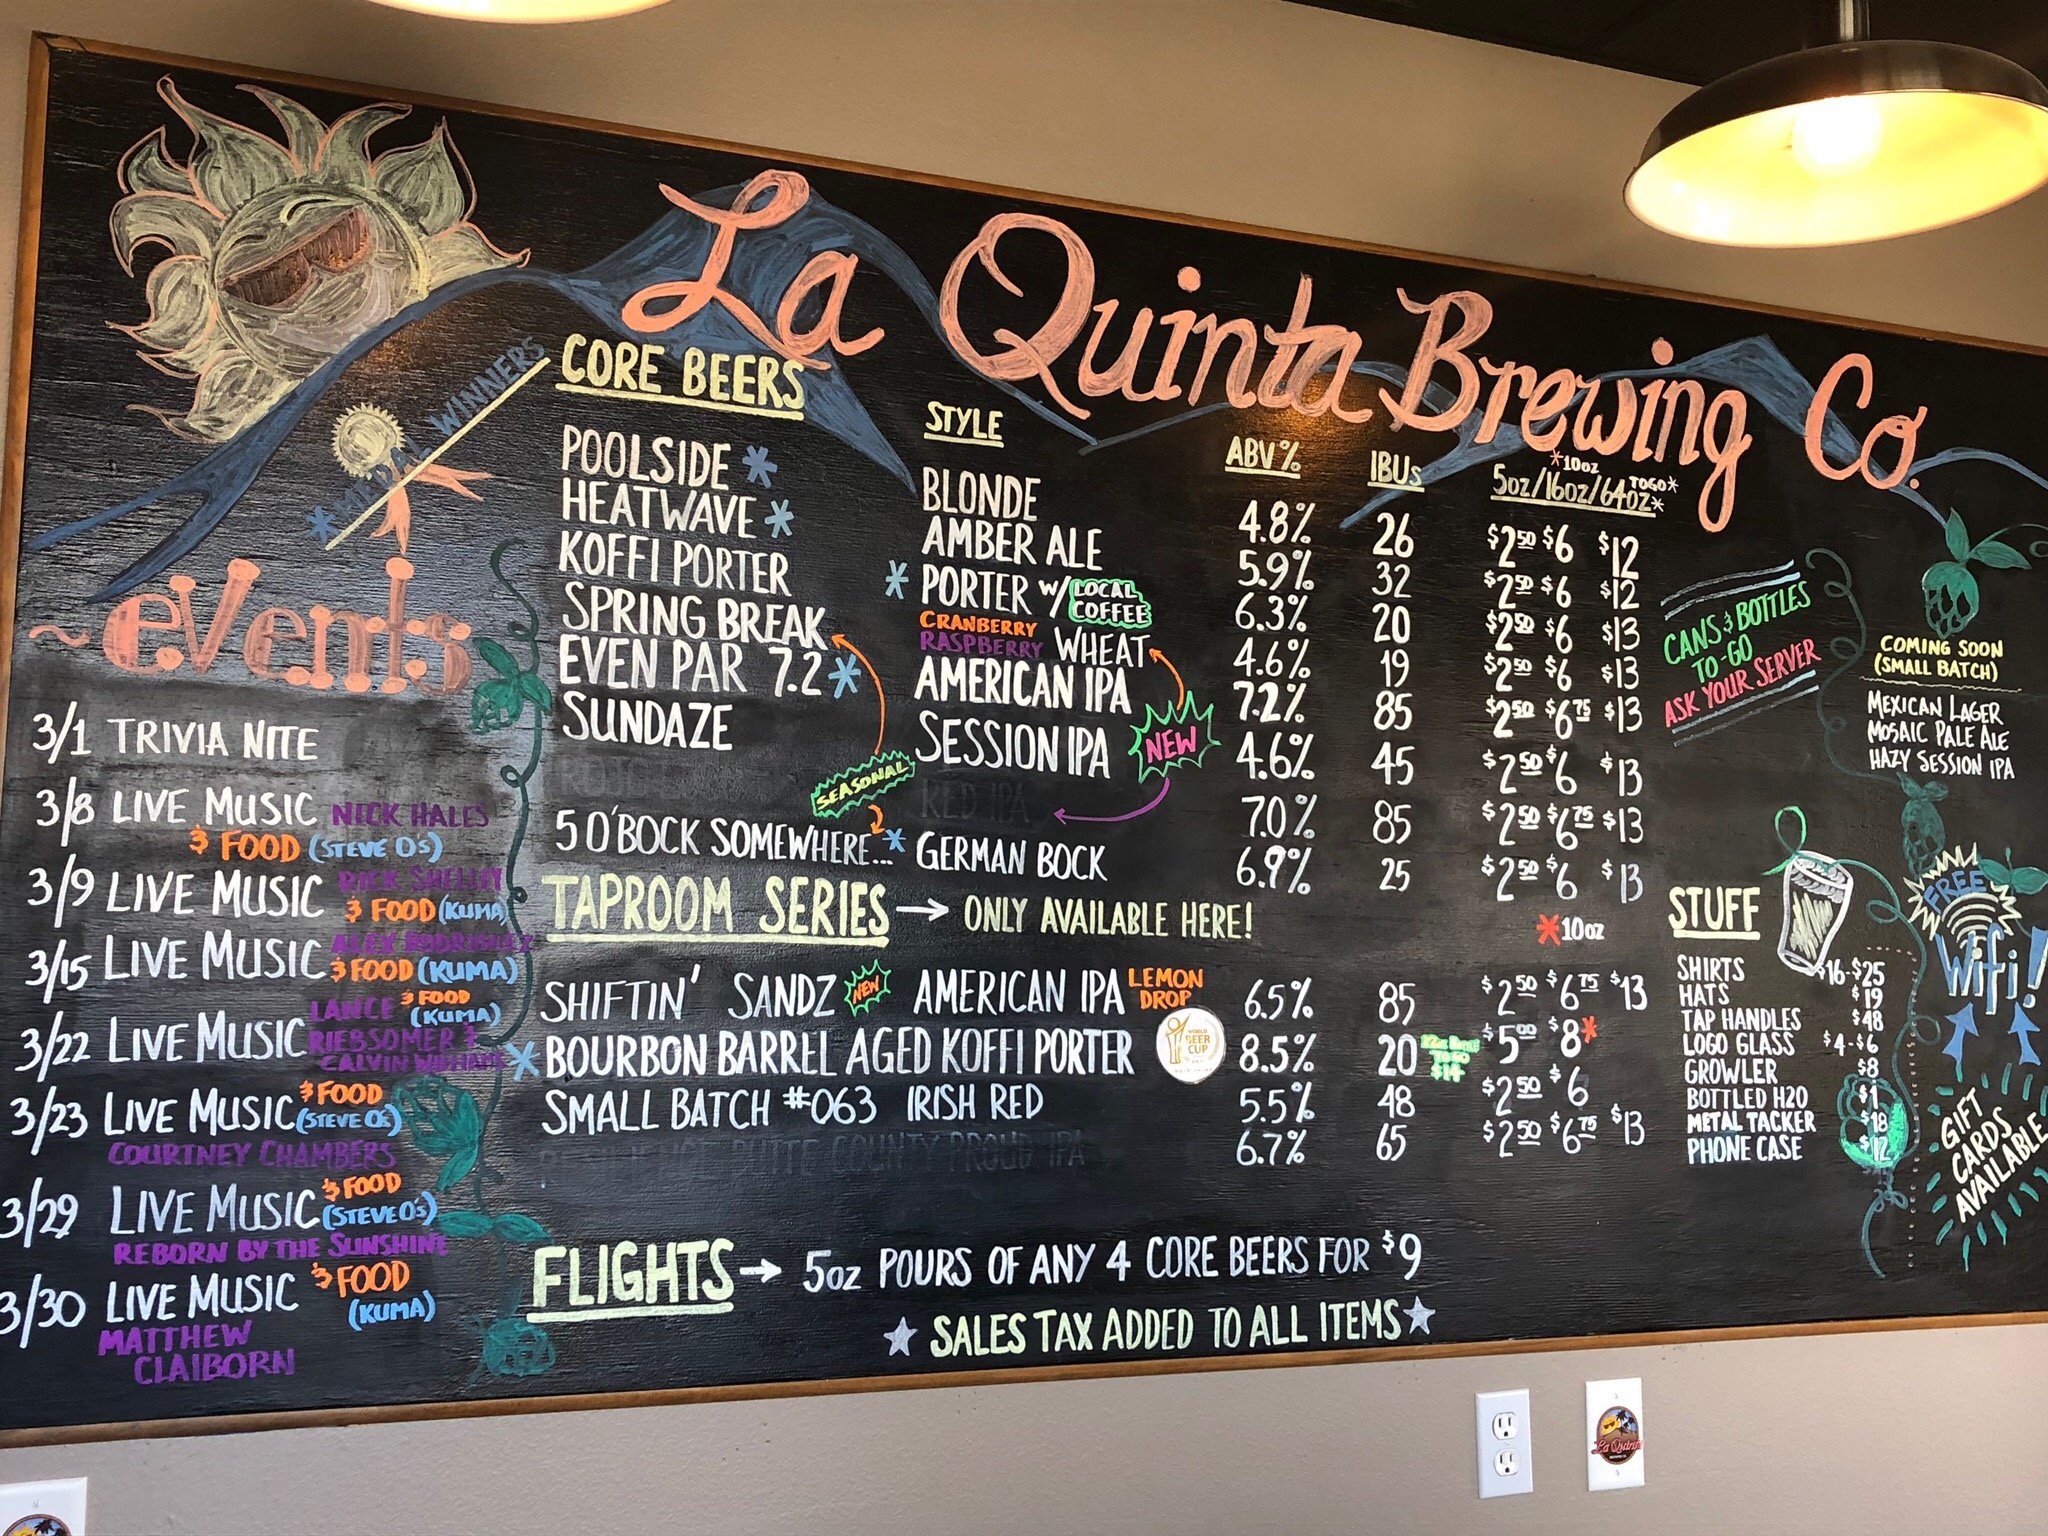 La Quinta Brewing Co.
*MEDAL WINNERS
~EVENTS
3/1 TRIVIA NITE
3/8 LIVE MUSIC NICK HALES
& FOOD (STEVE O'S)
3/9 LIVE MUSIC RICK SHELLEY
& FOOD (KUMA)
3/15 LIVE MUSIC ALEX RODRIGUEZ
& FOOD (KUMA)
3/22 LIVE MUSIC LANCE RIEBSOMER &
CALVIN WILLIAMS
& FOOD (KUMA)
3/23 LIVE MUSIC & FOOD (STEVE O'S)
COURTNEY CHAMBERS
3/29 LIVE MUSIC & FOOD (STEVE O'S)
REBORN BY THE SUNSHINE
3/30 LIVE MUSIC & FOOD (KUMA)
MATTHEW
CLAIBORN
CORE BEERS STYLE ABV% IBUs 5oz/16oz/64oz TOGO*
*10oz
POOLSIDE * BLONDE 4.8% 26 $2.50 $6 $12
HEATWAVE * AMBER ALE 5.9% 32 $2.50 $6 $12
KOFFI PORTER * PORTER W/ LOCAL COFFEE 6.3% 20 $2.50 $6 $13
SPRING BREAK CRANBERRY RASPBERRY WHEAT 4.6% 19 $2.50 $6 $13
EVEN PAR 7.2 * AMERICAN IPA 7.2% 85 $2.50 $6.75 $13
SUNDAZE SESSION IPA 4.6% 45 $2.50 $6 $13
NEW
SEASONAL
RED IPA 7.0% 85 $2.50 $6.75 $13
5 O'BOCK SOMEWHERE...* GERMAN BOCK 6.9% 25 $2.50 $6 $13
TAPROOM SERIES → ONLY AVAILABLE HERE!
*10oz
SHIFTIN' SANDZ NEW AMERICAN IPA LEMON DROP 6.5% 85 $2.50 $6.75 $13
*BOURBON BARREL AGED KOFFI PORTER 8.5% 20 $5.00 $8*
WORLD
BEER
CUP
TO GO
$14
SMALL BATCH #063 IRISH RED 5.5% 48 $2.50 $6
BUTTE COUNTY PROUD IPA 6.7% 65 $2.50 $6.75 $13
FLIGHTS → 5oz POURS OF ANY 4 CORE BEERS FOR $9
★ SALES TAX ADDED TO ALL ITEMS ★
CANS & BOTTLES
TO-GO
ASK YOUR SERVER
COMING SOON
(SMALL BATCH)
MEXICAN LAGER
MOSAIC PALE ALE
HAZY SESSION IPA
STUFF
SHIRTS $16-$25
HATS $19
TAP HANDLES $48
LOGO GLASS $4-$6
GROWLER $8
BOTTLED H2O $1
METAL TACKER $18
PHONE CASE $12
FREE
Wifi!
GIFT
CARDS
AVAILABLE
La Quinta